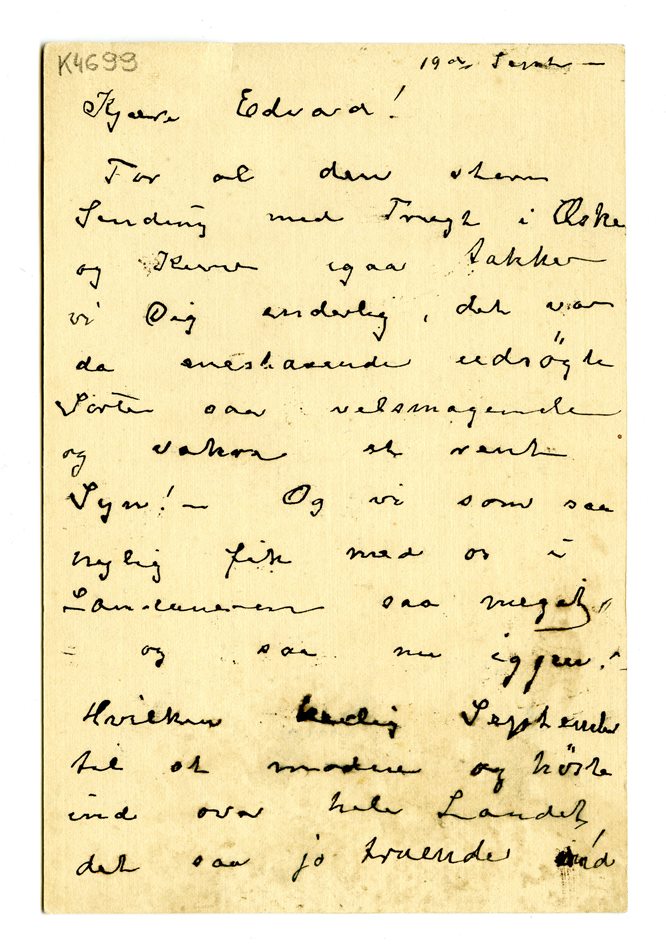 K4699
19de Sept –
Kjære Edvard!
For al den store
Sending med Frugt i Æske
og Kurve igaar takker
vi Dig inderlig, det var
da enestaaende udsøgte
Sorter saa velsmagende
og vakre et rent
Syn! – Og vi som saa
nylig fik med os i
saa meget,
– og saa nu igjen! –
Hvilken September
til at modne og høste
ind over hele Landet,
det saa jo truende ud